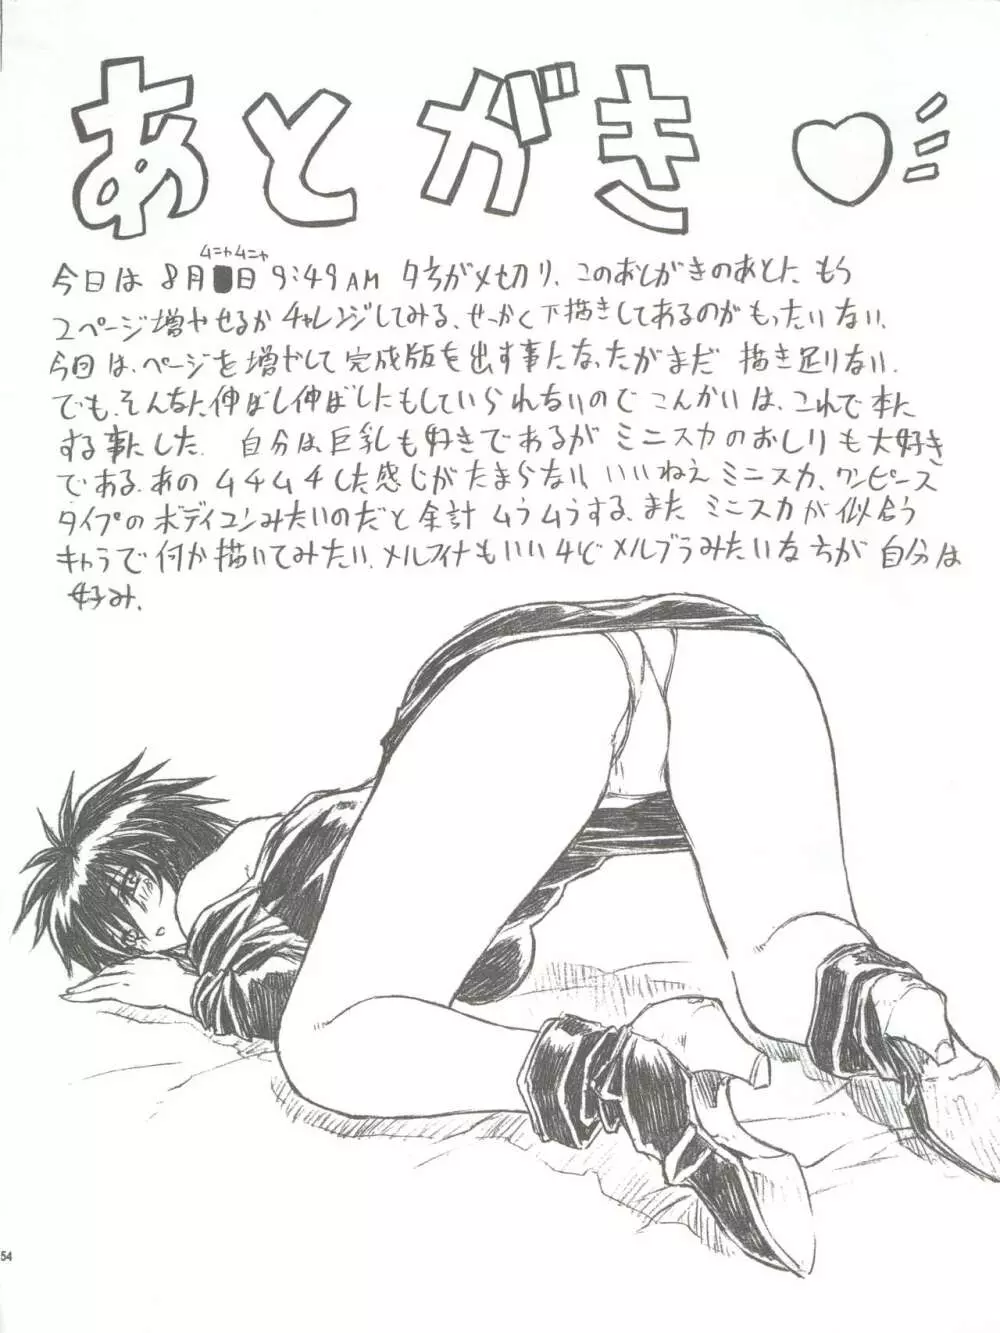 あとがき♡
ムニャムニャ
今日は 8月 日 9:49AM 夕方が〆切り、このあとがきのあとに もう
2ページ増やせるか チャレンジしてみる、せっかく下描きしてあるのが もったいない、
今回は、ページを増やして 完成版を出す事になったがまだ 描き足りない、
でも、そんなに伸ばし伸ばしにもしていられないので こんかいは、これで本に
する事にした、 自分は巨乳も好きであるが ミニスカのおしりも大好き
である、あの ムチムチした感じが たまらない、いいねえ ミニスカ、ワンピース
タイプの ボディコンみたいのだと 余計 ムラムラする、また ミニスカが 似合う
キャラで 何か描いてみたい、メルフィナもいいけど メルブラみたいな 方が 自分は
好み、
54